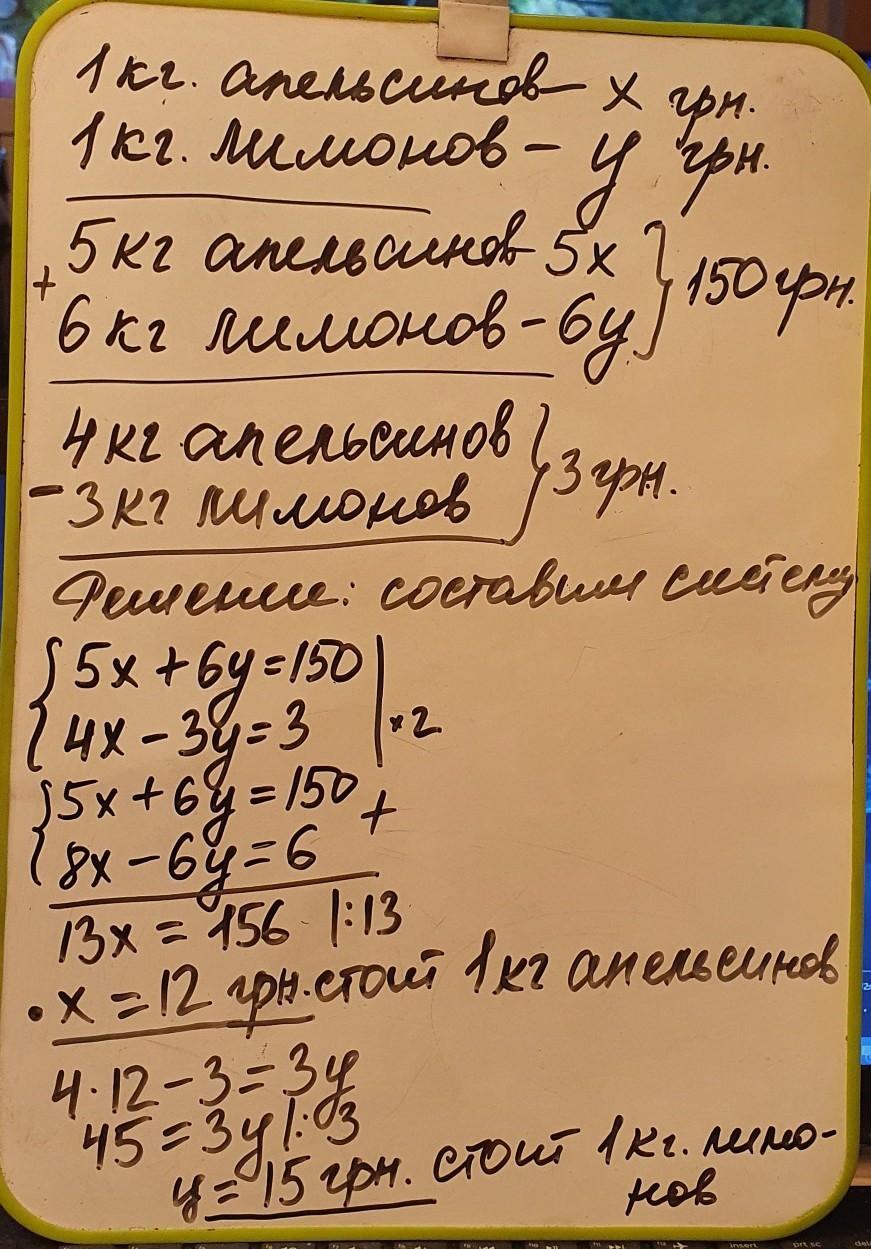 1кг. апельсинов – x грн.
1кг. лимонов – y грн.
5кг апельсинов – 5x
+ } 150грн.
6кг лимонов – 6y
4кг апельсинов
– } 3грн.
3кг лимонов
Решение: составим систему
{5x + 6y = 150
{4x – 3y = 3 | × 2
{5x + 6y = 150 +
{8x – 6y = 6
13x = 156 |:13
• x = 12 грн. стоит 1кг апельсинов
4·12 – 3 = 3y
45 = 3y |: 3
y = 15 грн. стоит 1кг. лимо-
нов